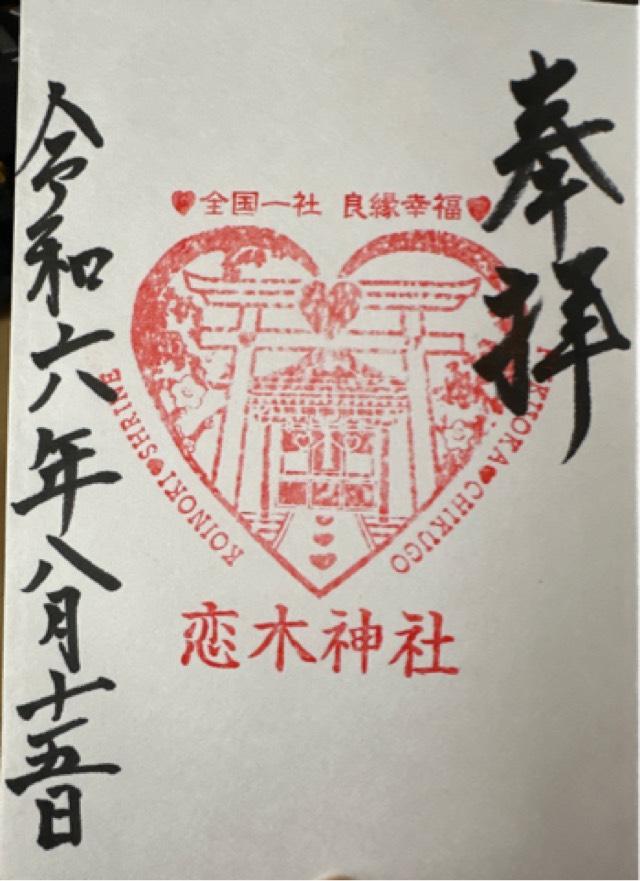 奉拝
全国一社 良縁幸福
KOINOKI SHRINE
FUKUOKA CHIKUGO
恋木神社
令和六年八月十五日